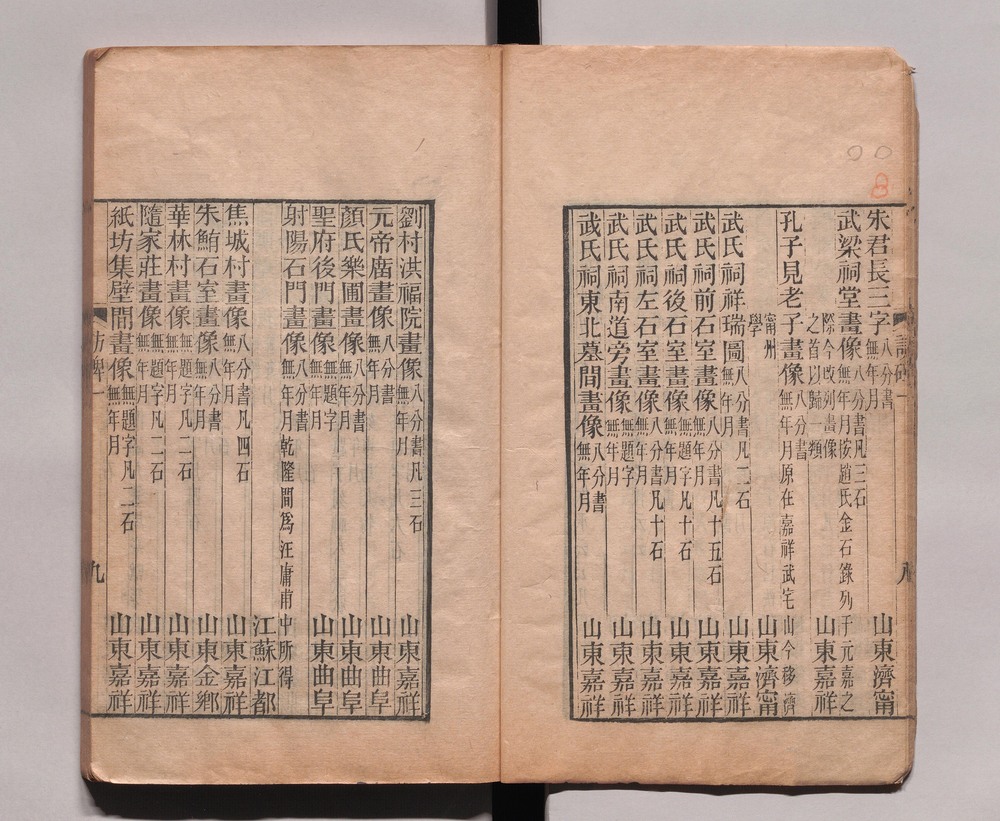 朱君長三字八分書無年月 山東濟甯
武梁祠堂畫像八分書凡三石無年月按趙氏金石錄列于元嘉之際今改列畫像之首以歸一類 山東嘉祥
孔子見老子畫像八分書無年月原在嘉祥武宅山今移濟甯州學 山東濟甯
武氏祠祥瑞圖八分書凡二石無年月 山東嘉祥
武氏祠前石室畫像八分書凡十五石無年月 山東嘉祥
武氏祠後石室畫像無題字凡十石無年月 山東嘉祥
武氏祠左石室畫像八分書凡十石無年月 山東嘉祥
武氏祠南道旁畫像無題字無年月 山東嘉祥
武氏祠東北墓間畫像八分書無年月 山東嘉祥
八
劉村洪福院畫像八分書凡三石無年月 山東嘉祥
元帝廟畫像八分書無年月 山東曲阜
顏氏樂圃畫像八分書無年月 山東曲阜
聖府後門畫像無題字無年月 山東曲阜
射陽石門畫像八分書無年月乾隆間為汪庸甫中所得 江蘇江都
焦城村畫像八分書凡四石無年月 山東嘉祥
朱鮪石室畫像八分書無年月 山東金鄉
華林村畫像無題字凡二石無年月 山東嘉祥
隨家莊畫像無題字凡二石無年月 山東嘉祥
紙坊集壁間畫像無題字凡二石無年月 山東嘉祥
訪碑一
九